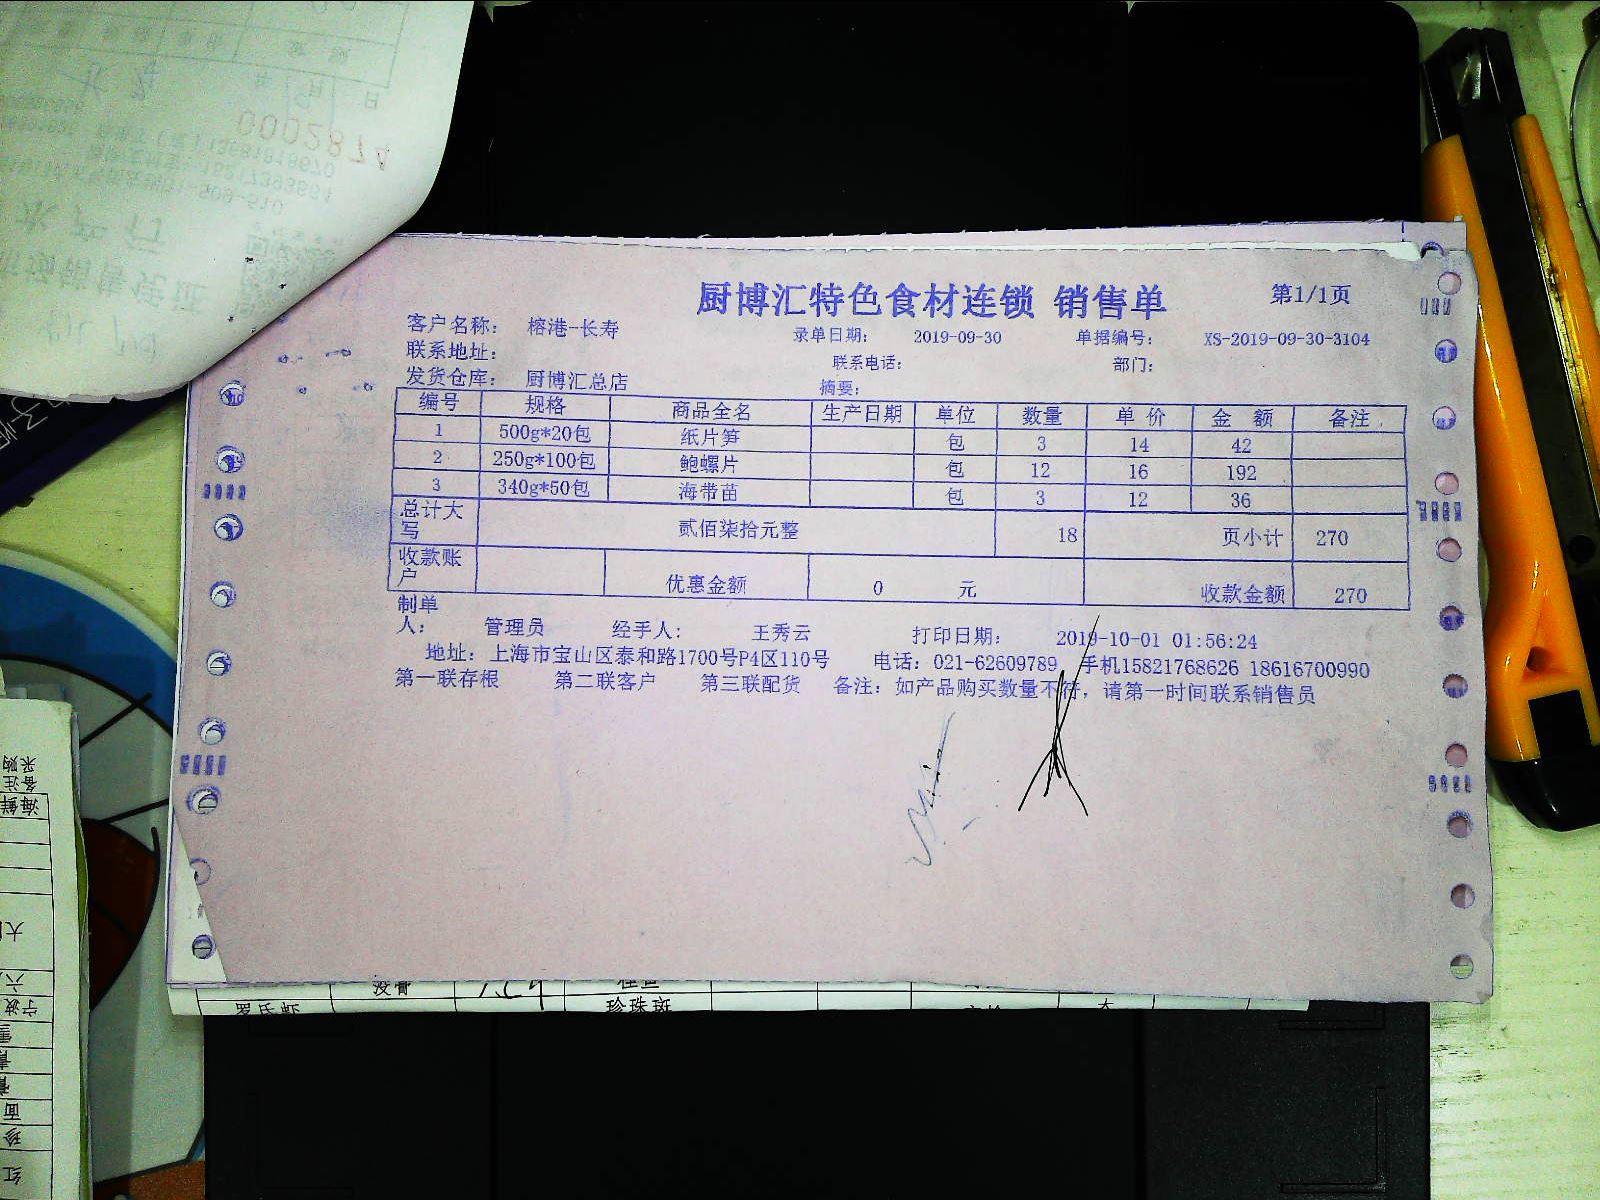 厨博汇特色食材连锁 销售单 第1/1页
客户名称: 榕港-长寿 录单日期: 2019-09-30 单据编号: XS-2019-09-30-3104
联系地址: 联系电话: 部门:
发货仓库: 厨博汇总店 摘要:
编号 规格 商品全名 生产日期 单位 数量 单 价 金 额 备注
1 500g*20包 纸片笋 包 3 14 42
2 250g*100包 鲍螺片 包 12 16 192
3 340g*50包 海带苗 包 3 12 36
总计大写 贰佰柒拾元整 18 页小计 270
收款账户 优惠金额 0 元 收款金额 270
制单人: 管理员 经手人: 王秀云 打印日期: 2019-10-01 01:56:24
地址: 上海市宝山区泰和路1700号P4区110号 电话: 021-62609789 手机15821768626 18616700990
第一联存根 第二联客户 第三联配货 备注: 如产品购买数量不符, 请第一时间联系销售员
0002874
罗氏虾 珍珠斑
采购
备注
海鲜
宁波
面
珍
红